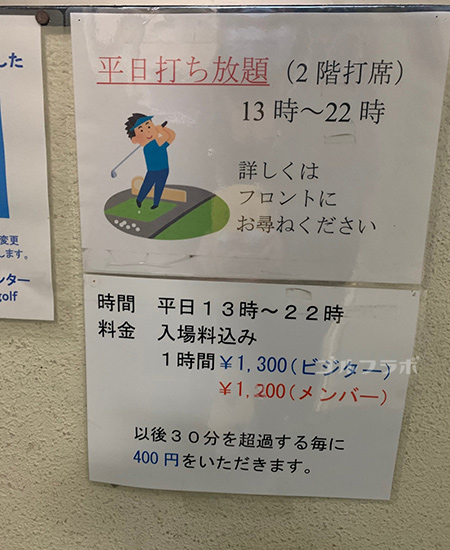 した
変更
します。
ンター
golf
平日打ち放題（2階打席）
13時～22時
詳しくは
フロントに
お尋ねください
時間　平日１３時～２２時
料金　入場料込み
１時間￥1,300（ビジター）
￥1,200（メンバー）
以後３０分を超過する毎に
400円をいただきます。
ゴルフラボ